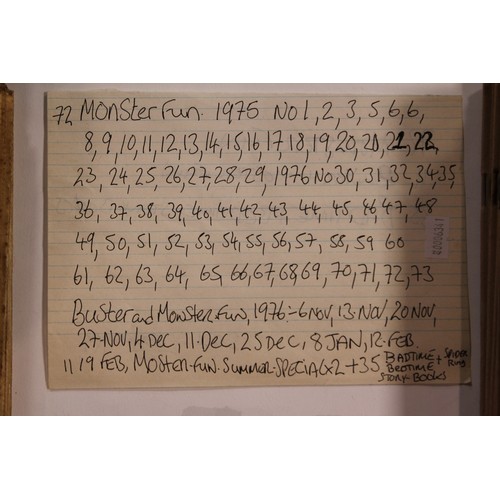 72 Monster Fun. 1975 No 1, 2, 3, 5, 6, 6,
8, 9, 10, 11, 12, 13, 14, 15, 16, 17, 18, 19, 20, 20, 21, 22,
23, 24, 25, 26, 27, 28, 29, 1976 No 30, 31, 32, 34, 35,
36, 37, 38, 39, 40, 41, 42, 43, 44, 45, 46, 47, 48
49, 50, 51, 52, 53, 54, 55, 56, 57, 58, 59 60
61, 62, 63, 64, 65, 66, 67, 68, 69, 70, 71, 72, 73
Buster and Monster Fun, 1976:- 6 Nov, 13. Nov, 20 Nov,
27. Nov, 4 Dec, 11. Dec, 25 Dec, 8 JAN, 12. FEB.
11 19 FEB, Moster. Fun. Summer. SPECIALX2 + 35 BADTIME + SPIDER
BEDTIME RING
STORY-BOOKS